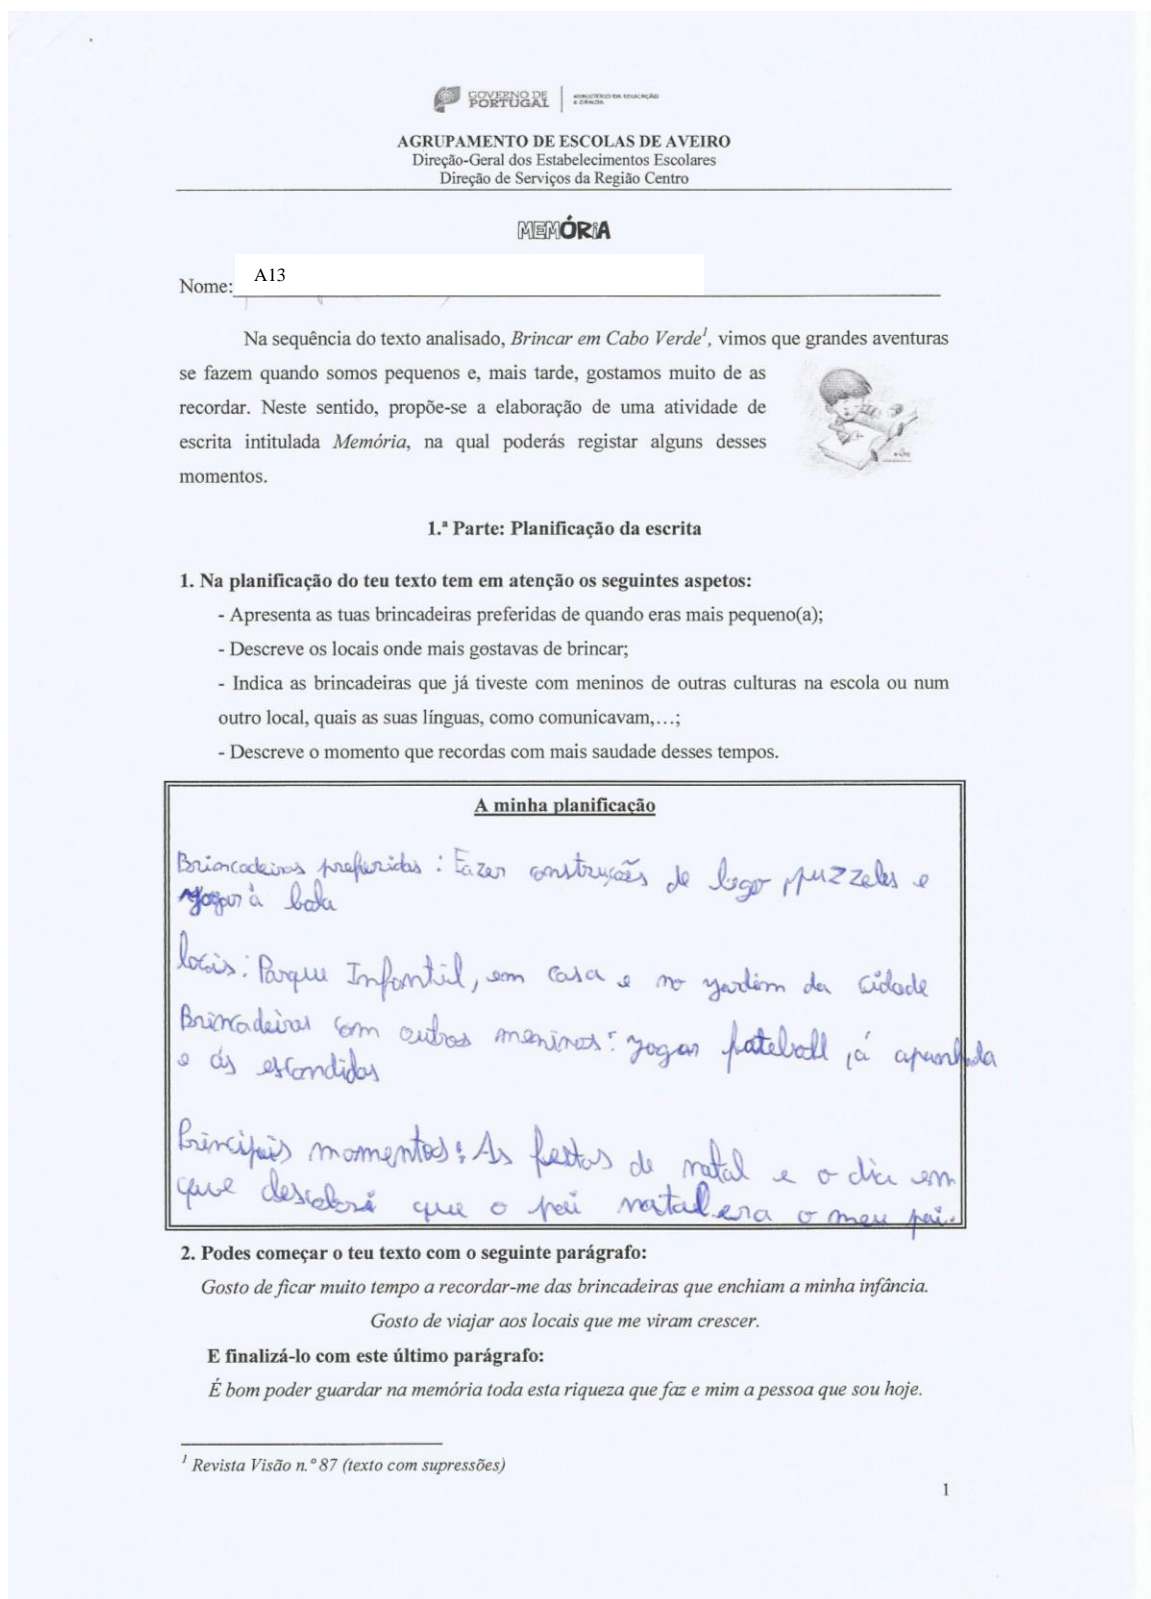 GOVERNO DE
PORTUGAL
MINISTÉRIO DA EDUCAÇÃO
E CIÊNCIA
AGRUPAMENTO DE ESCOLAS DE AVEIRO
Direção-Geral dos Estabelecimentos Escolares
Direção de Serviços da Região Centro
MEMÓRiA
Nome: A13
Na sequência do texto analisado, Brincar em Cabo Verde¹, vimos que grandes aventuras
se fazem quando somos pequenos e, mais tarde, gostamos muito de as
recordar. Neste sentido, propõe-se a elaboração de uma atividade de
escrita intitulada Memória, na qual poderás registar alguns desses
momentos.
1.ª Parte: Planificação da escrita
1. Na planificação do teu texto tem em atenção os seguintes aspetos:
- Apresenta as tuas brincadeiras preferidas de quando eras mais pequeno(a);
- Descreve os locais onde mais gostavas de brincar;
- Indica as brincadeiras que já tiveste com meninos de outras culturas na escola ou num
outro local, quais as suas línguas, como comunicavam,…;
- Descreve o momento que recordas com mais saudade desses tempos.
A minha planificação
Brincadeiras preferidas : Fazer construções de lego, puzzeles e
jogar à bola
locais: Parque Infantil, em casa e no jardim da cidade
Brincadeiras com outros meninos: jogar , á apanhada
e ás escondidas
Principais momentos: As festas de natal e o dia em
que descobri que o pai natal era o meu pai.
2. Podes começar o teu texto com o seguinte parágrafo:
Gosto de ficar muito tempo a recordar-me das brincadeiras que enchiam a minha infância.
Gosto de viajar aos locais que me viram crescer.
E finalizá-lo com este último parágrafo:
É bom poder guardar na memória toda esta riqueza que faz e mim a pessoa que sou hoje.
¹ Revista Visão n.º 87 (texto com supressões)
1